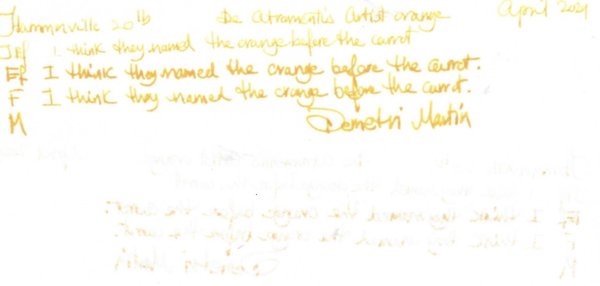 Hammermill 20 lb De Atramentis Artist orange April 2021
EF I think they named the orange before the carrot
EF I think they named the orange before the carrot.
F I think they named the orange before the carrot.
M Demetri Martin